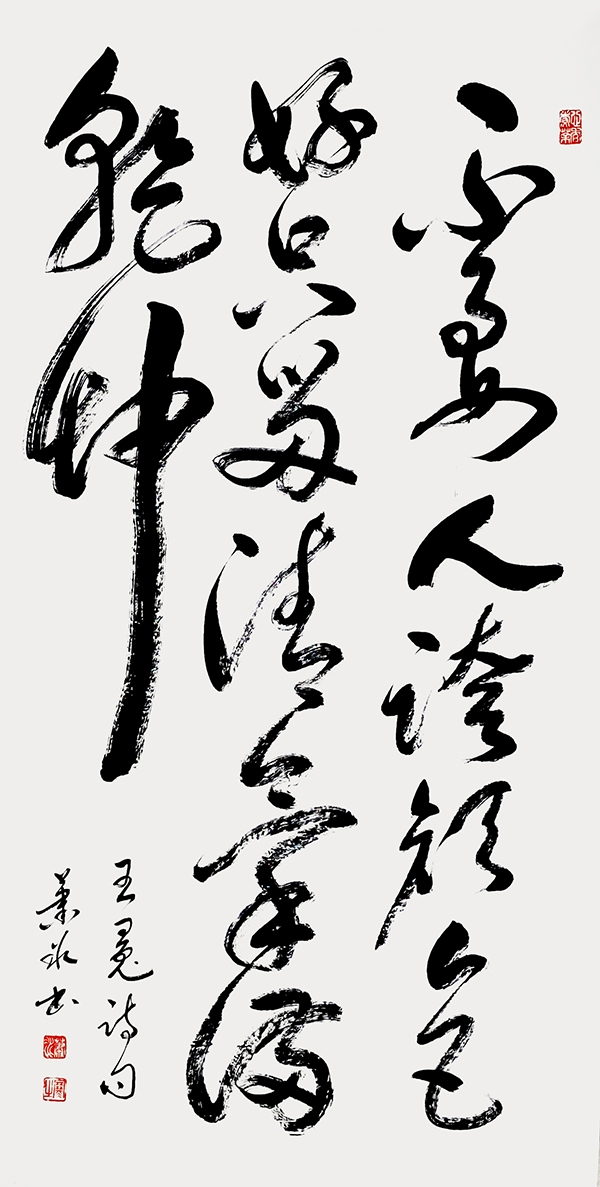 不要人誇顏色
好只留清氣滿
乾坤
王冕詩句
書